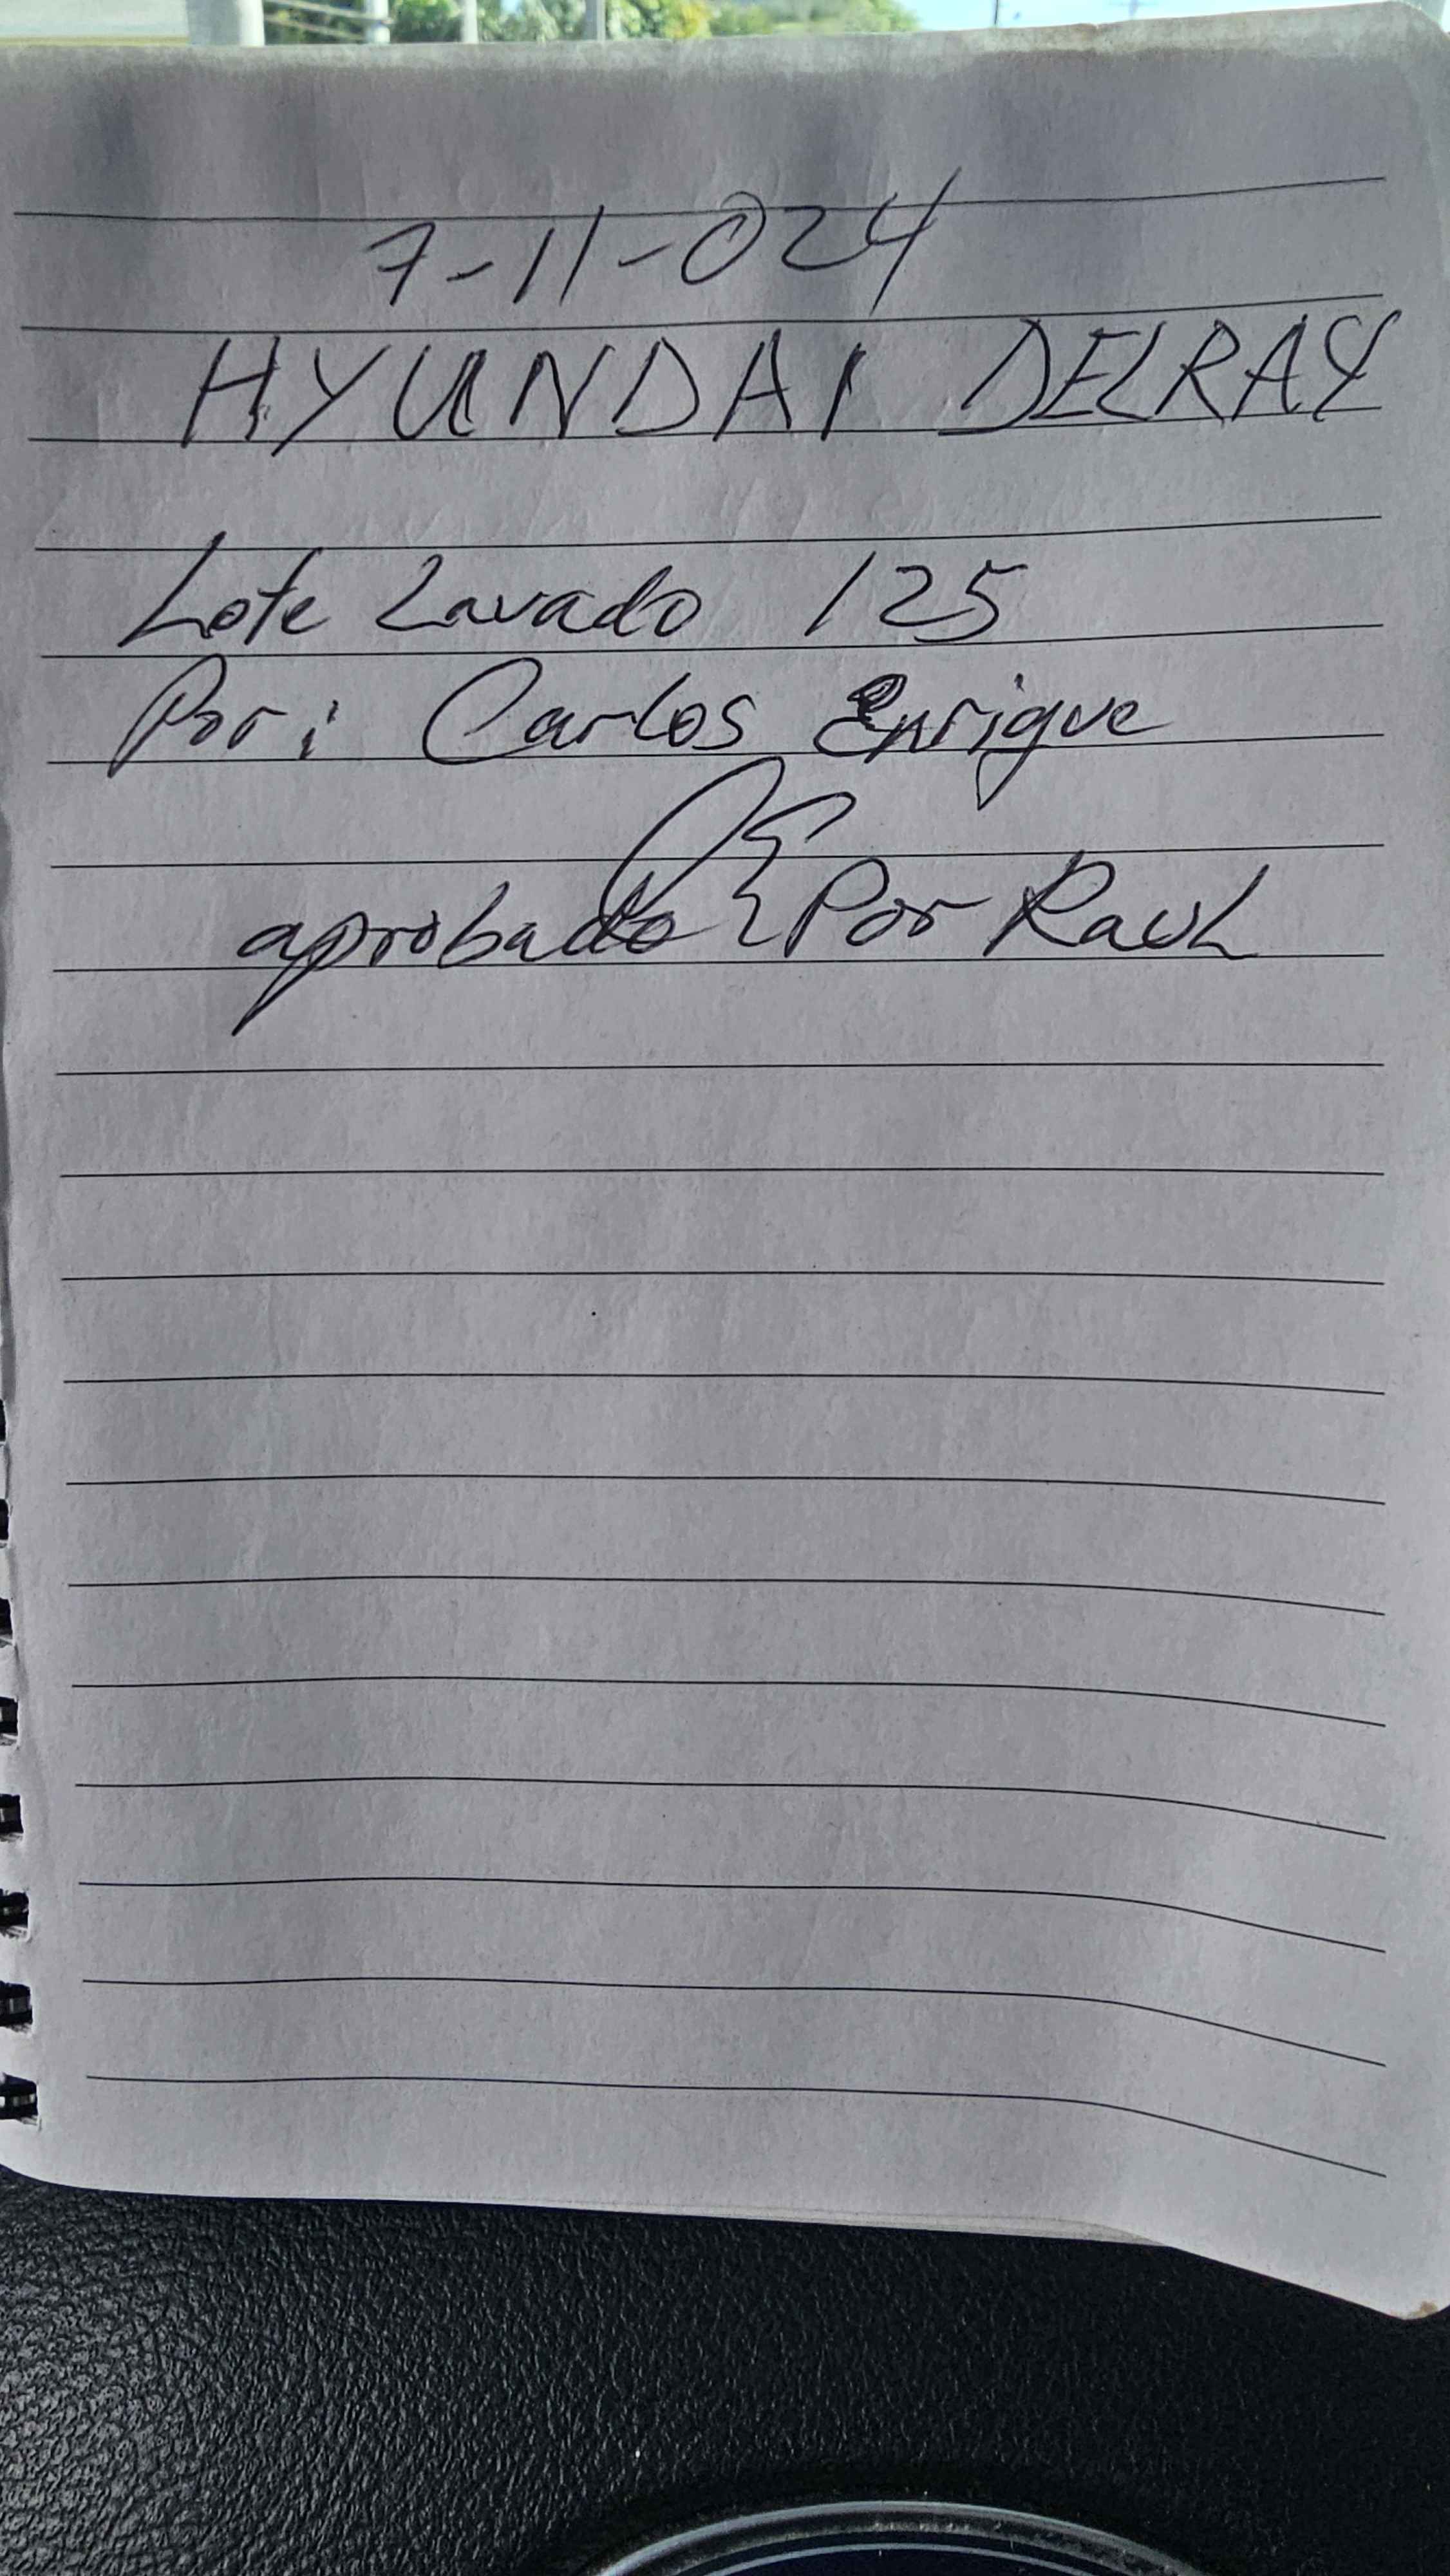 7-11-024
HYUNDAI DELRAY
Lote Lavado 125
Por: Carlos Enrique
aprobado Por Raul